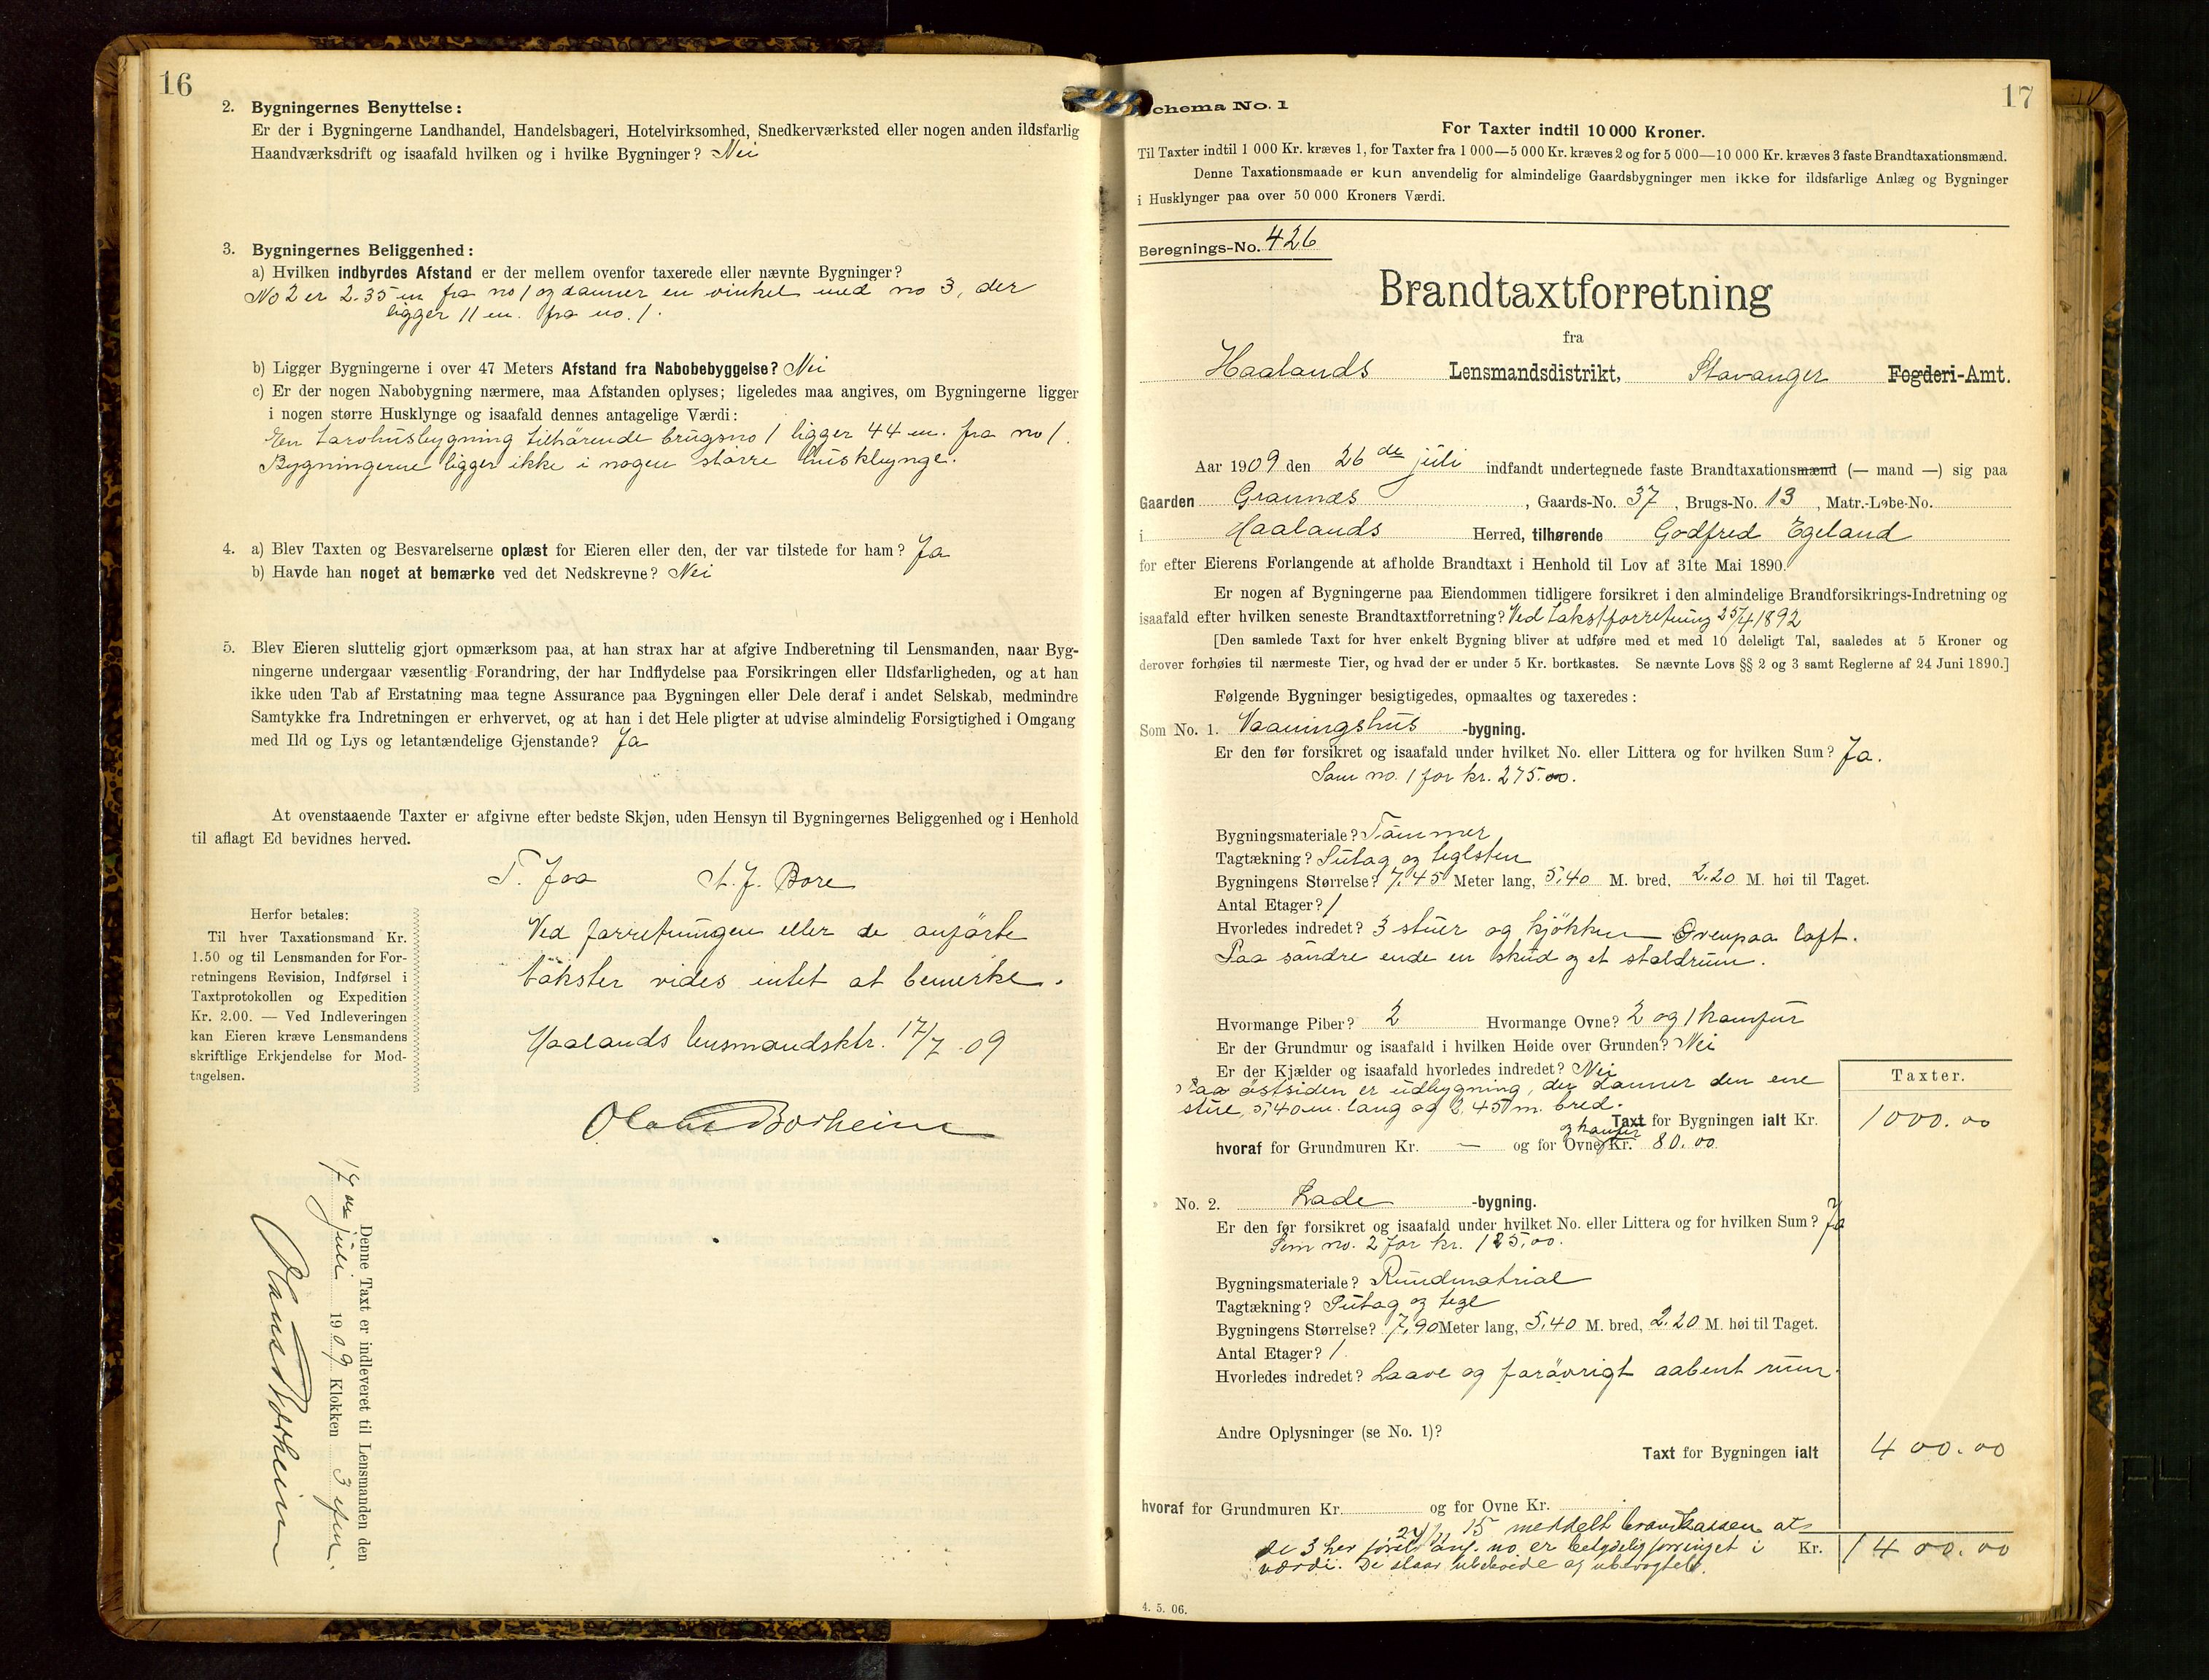 16
2. Bygningernes Benyttelse:
Er der i Bygningerne Landhandel, Handelsbageri, Hotelvirksomhed, Snedkerværksted eller nogen anden ildsfarlig
Haandværksdrift og isaafald hvilken og i hvilke Bygninger? Nei
3. Bygningernes Beliggenhed:
a) Hvilken indbyrdes Afstand er der mellem ovenfor taxerede eller nævnte Bygninger?
No 2 er 2.35 m fra no 1 og danner en vinkel med no 3, der
ligger 11 m. fra no. 1.
b) Ligger Bygningerne i over 47 Meters Afstand fra Nabobebyggelse? Nei
c) Er der nogen Nabobygning nærmere, maa Afstanden oplyses; ligeledes maa angives, om Bygningerne ligger
i nogen større Husklynge og isaafald dennes antagelige Værdi:
En tarvhusbygning tilhörende brugsno 1 ligger 44 m. fra no 1.
Bygningerne ligger ikke i nogen större husklynge.
4. a) Blev Taxten og Besvarelserne oplæst for Eieren eller den, der var tilstede for ham? Ja
b) Havde han noget at bemærke ved det Nedskrevne? Nei
5. Blev Eieren sluttelig gjort opmærksom paa, at han strax har at afgive Indberetning til Lensmanden, naar Byg-
ningerne undergaar væsentlig Forandring, der har Indflydelse paa Forsikringen eller Ildsfarligheden, og at han
ikke uden Tab af Erstatning maa tegne Assurance paa Bygningen eller Dele deraf i andet Selskab, medmindre
Samtykke fra Indretningen er erhvervet, og at han i det Hele pligter at udvise almindelig Forsigtighed i Omgang
med Ild og Lys og letantændelige Gjenstande? Ja
At ovenstaaende Taxter er afgivne efter bedste Skjøn, uden Hensyn til Bygningernes Beliggenhed og i Henhold
til aflagt Ed bevidnes herved.
T. Joa A. J. Bore
Ved forretningen eller de anförte
takster vides intet at bemerke.
Haalands lensmandsktr. 17/7 09
Olaus Borheim
Herfor betales:
Til hver Taxationsmand Kr.
1.50 og til Lensmanden for For-
retningens Revision, Indførsel i
Taxtprotokollen og Expedition
Kr. 2.00. — Ved Indleveringen
kan Eieren kræve Lensmandens
skriftlige Erkjendelse for Mod-
tagelsen.
Denne Taxt er indleveret til Lensmanden den
17 de juli 1909 Klokken 3 efm.
Olaus Borheim
17
Schema No. 1
For Taxter indtil 10 000 Kroner.
Til Taxter indtil 1 000 Kr. kræves 1, for Taxter fra 1 000—5 000 Kr. kræves 2 og for 5 000—10 000 Kr. kræves 3 faste Brandtaxationsmænd.
Denne Taxationsmaade er kun anvendelig for almindelige Gaardsbygninger men ikke for ildsfarlige Anlæg og Bygninger
i Husklynger paa over 50 000 Kroners Værdi.
Beregnings-No. 426
Brandtaxtforretning
fra
Haalands Lensmandsdistrikt, Stavanger Fogderi-Amt.
Aar 1909 den 26 de juli indfandt undertegnede faste Brandtaxationsmænd (— mand —) sig paa
Gaarden Grannæs, Gaards-No. 37, Brugs-No. 13, Matr.-Løbe-No.
i Haalands Herred, tilhørende Godfred Egeland
for efter Eierens Forlangende at afholde Brandtaxt i Henhold til Lov af 31te Mai 1890.
Er nogen af Bygningerne paa Eiendommen tidligere forsikret i den almindelige Brandforsikrings-Indretning og
isaafald efter hvilken seneste Brandtaxtforretning? Ved takstforretning 25/4 1892
[Den samlede Taxt for hver enkelt Bygning bliver at udføre med et med 10 deleligt Tal, saaledes at 5 Kroner og
derover forhøies til nærmeste Tier, og hvad der er under 5 Kr. bortkastes. Se nævnte Lovs §§ 2 og 3 samt Reglerne af 24 Juni 1890.]
Følgende Bygninger besigtigedes, opmaaltes og taxeredes:
Som No. 1. Vaaningshus -bygning.
Er den før forsikret og isaafald under hvilket No. eller Littera og for hvilken Sum? Ja.
Som no. 1 for kr. 275.00.
Bygningsmateriale? Tömmer
Tagtækning? Sutag og teglsten
Bygningens Størrelse? 7,45 Meter lang, 5,40 M. bred, 2.20 M. høi til Taget.
Antal Etager? 1
Hvorledes indredet? 3 stuer og kjökken Ovenpaa loft.
Paa söndre ende en skud og et staldrum.
Hvormange Piber? 2 Hvormange Ovne? 2 og 1 komfur
Er der Grundmur og isaafald i hvilken Høide over Grunden? Nei
Er der Kjælder og isaafald hvorledes indredet? Nei
Paa östsiden er udbygning, der danner den ene
stue, 5,40 m. lang og 2.45 m. bred.
Taxter.
Taxt for Bygningen ialt Kr. 1000.00
hvoraf for Grundmuren Kr. — og for Ovne og komfur Kr. 80.00
No. 2. Lade -bygning.
Er den før forsikret og isaafald under hvilket No. eller Littera og for hvilken Sum? Ja
Som no. 2 for kr. 125,00.
Bygningsmateriale? Rundmatrial
Tagtækning? Sutag og tegl
Bygningens Størrelse? 7,90 Meter lang, 5,40 M. bred, 2.20 M. høi til Taget.
Antal Etager? 1.
Hvorledes indredet? Laave og forövrigt aabent rum.
Andre Oplysninger (se No. 1)?
Taxt for Bygningen ialt 400.00
hvoraf for Grundmuren Kr. og for Ovne Kr.
15 meddelt brandkassen at
de 3 her no. er betydelig forringet i
værdi. De staar ubeboede og ubenyttet.
Kr. 1400.00
4. 5. 06.